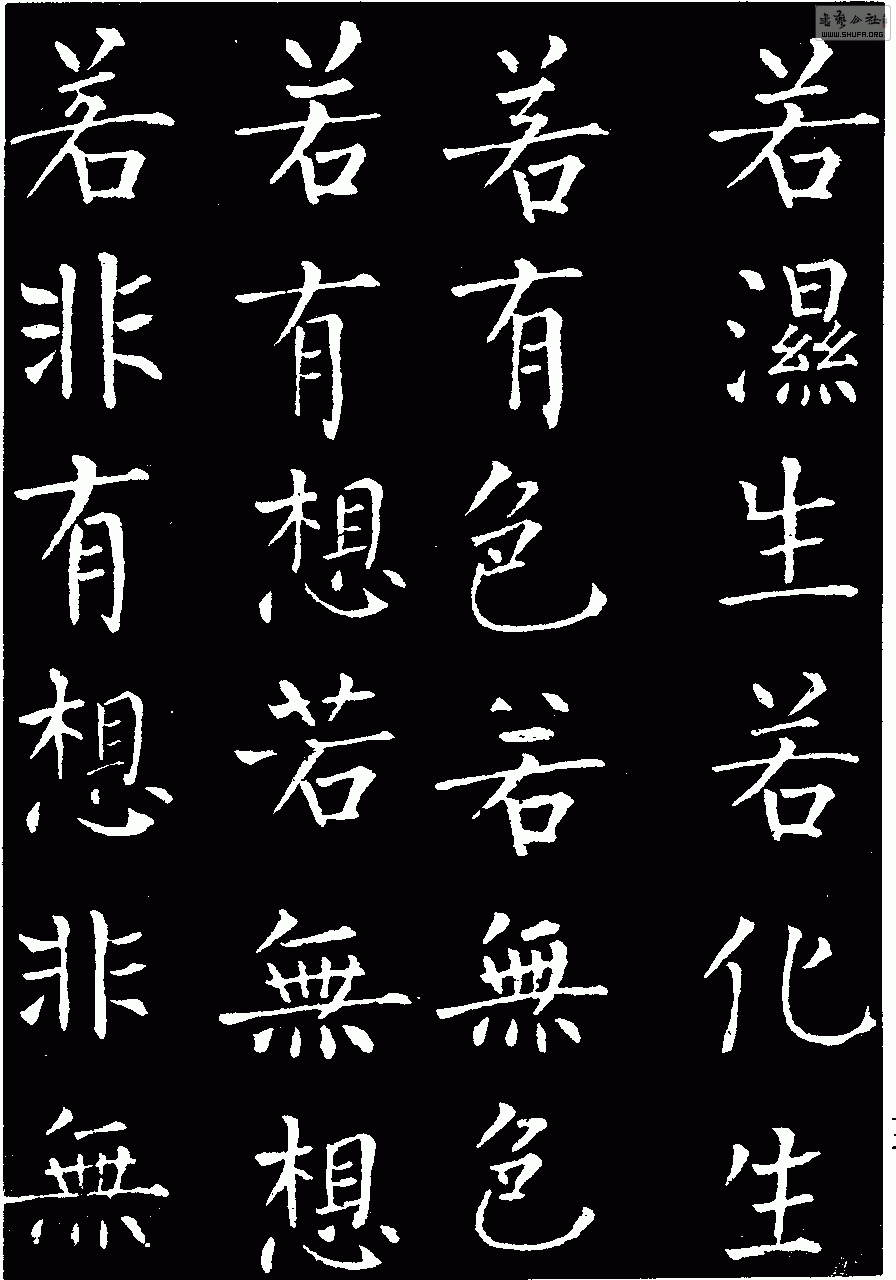 若濕生若化生
若有色若無色
若有想若無想
若非有想非無
WWW.SHUFA.ORG